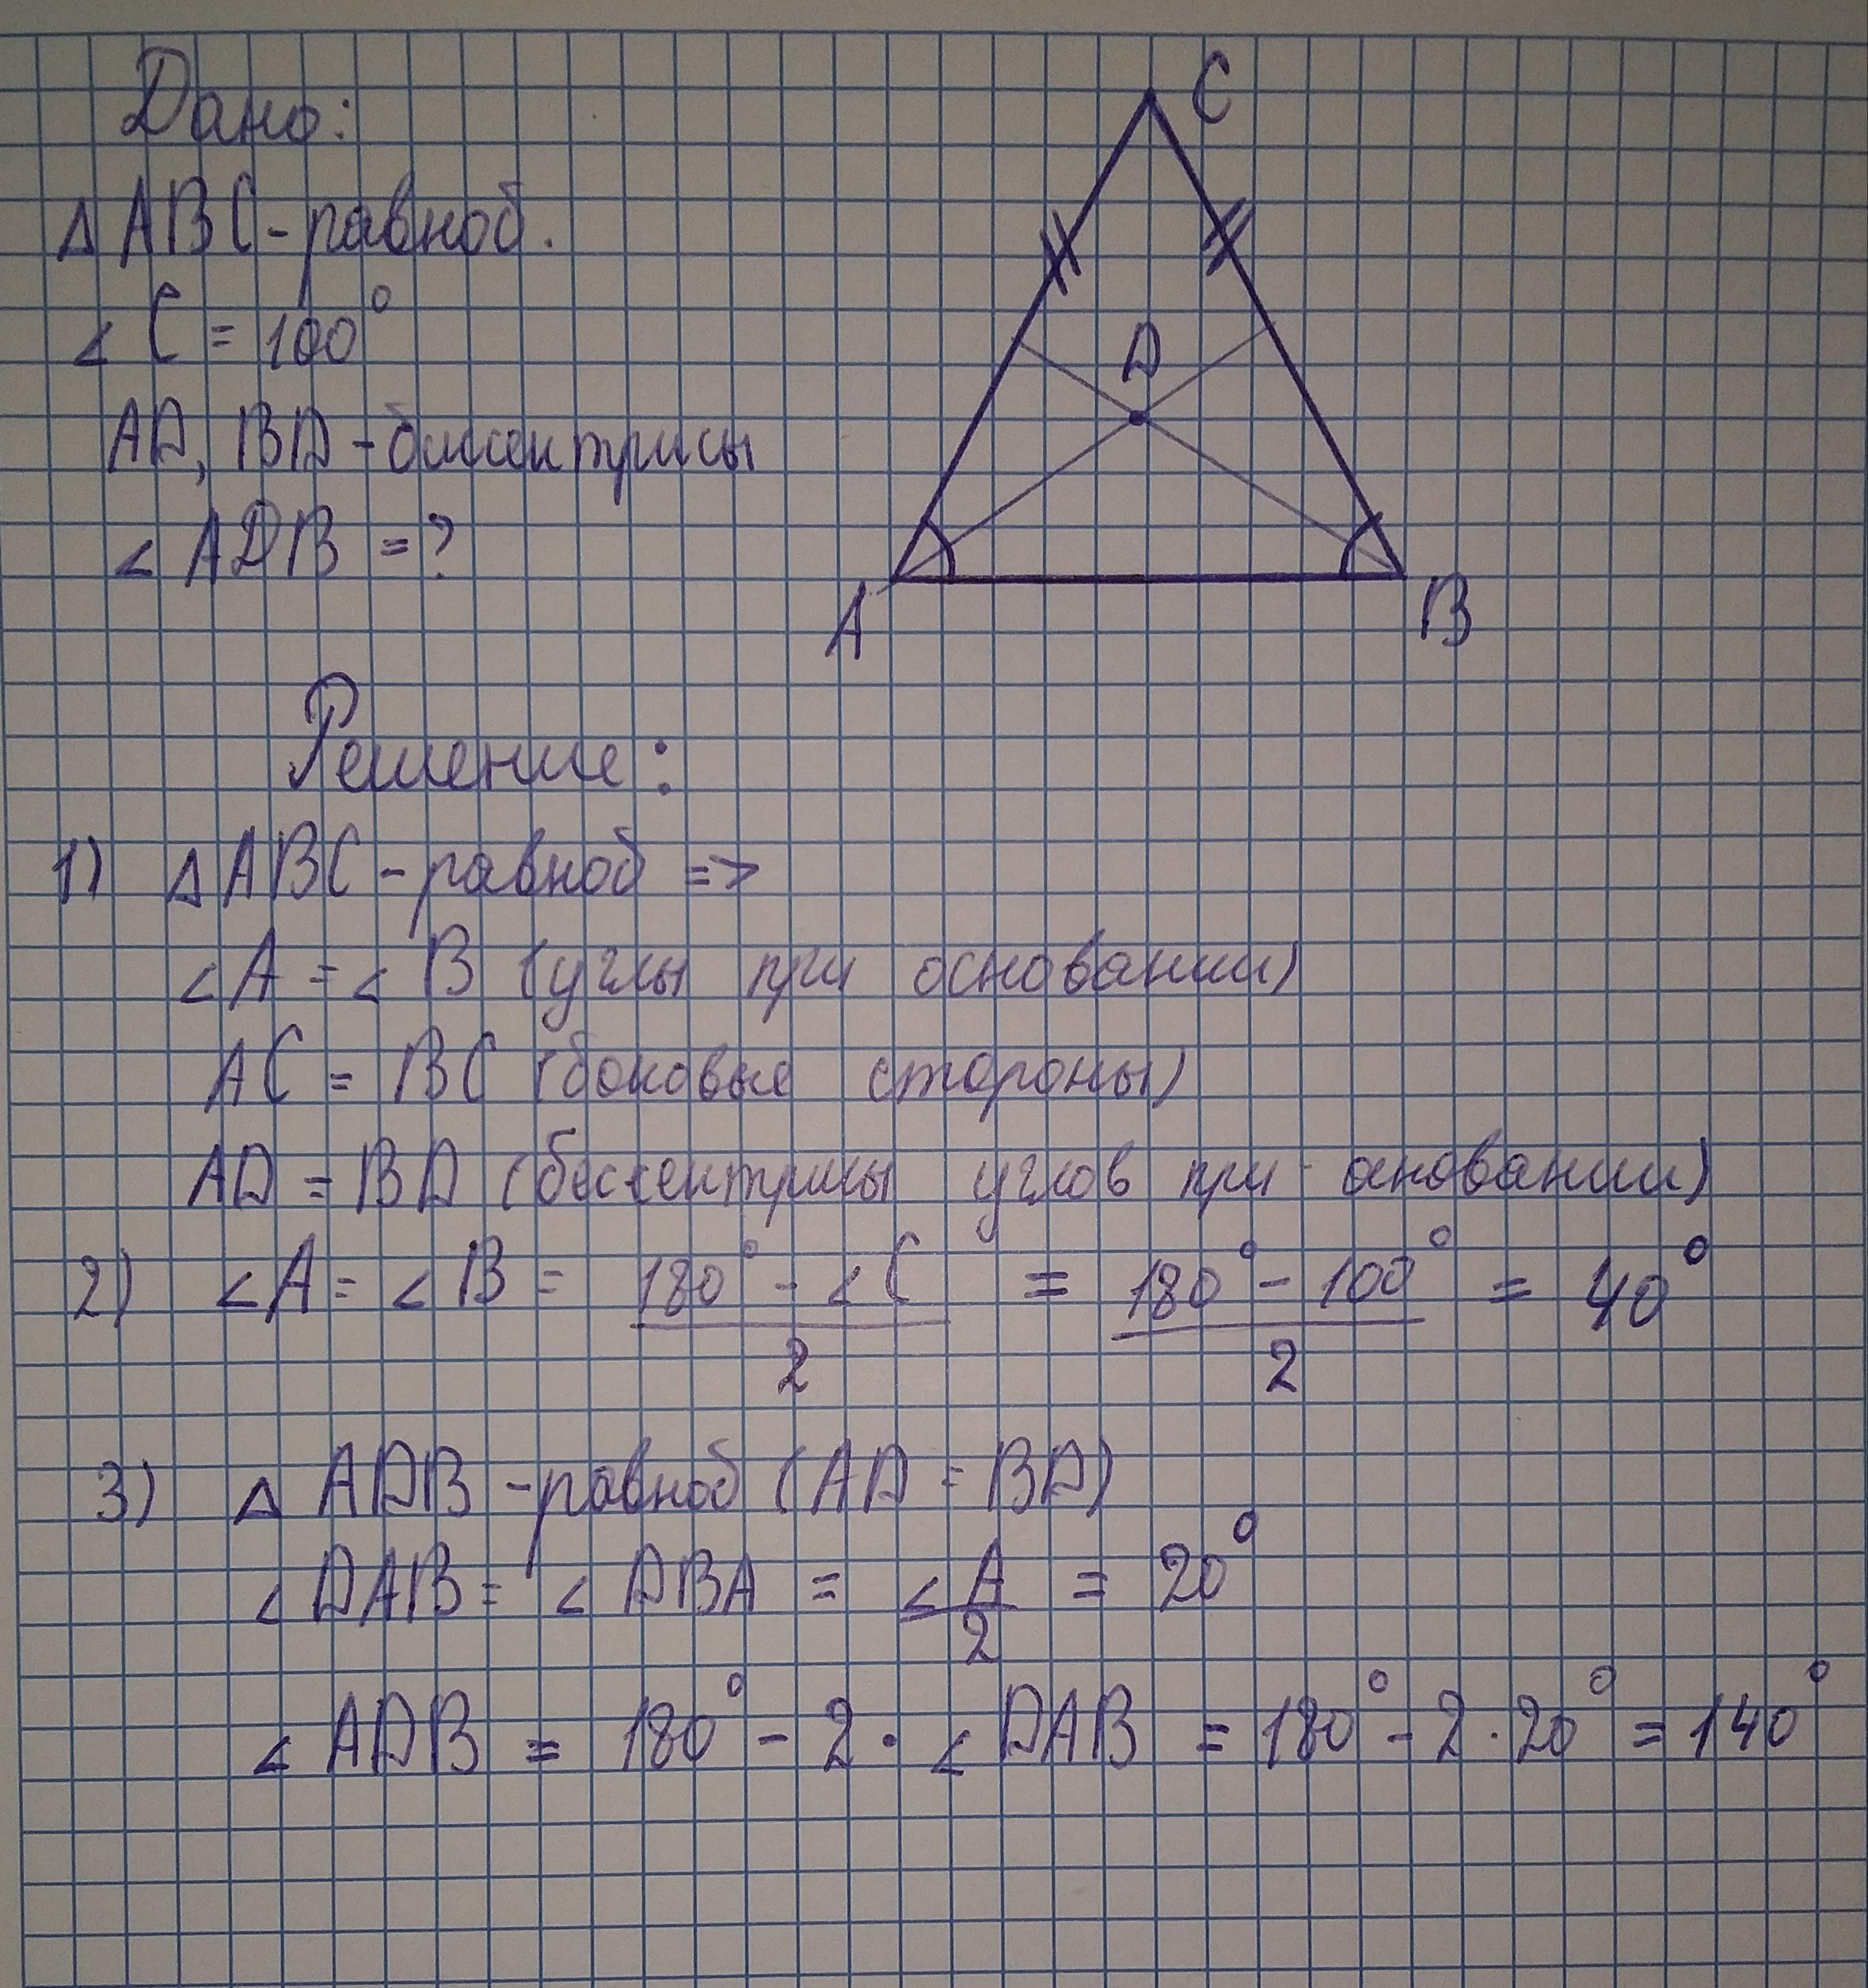 Дано:
△ ABC - равноб.
∠ C = 100°
AD, BD - биссектрисы
∠ ADB = ?
C
D
A
B
Решение:
1) △ ABC - равноб =>
∠ A = ∠ B (углы при основании)
AC = BC (боковые стороны)
AD = BD (бессектрисы углов при оновании)
2) ∠ A = ∠ B = (180° - ∠ C)/2 = (180° - 100°)/2 = 40°
3) △ ADB - равноб (AD = BD)
∠ DAB = ∠ DBA = ∠ A/2 = 20°
∠ ADB = 180° - 2 · ∠ DAB = 180° - 2 · 20° = 140°